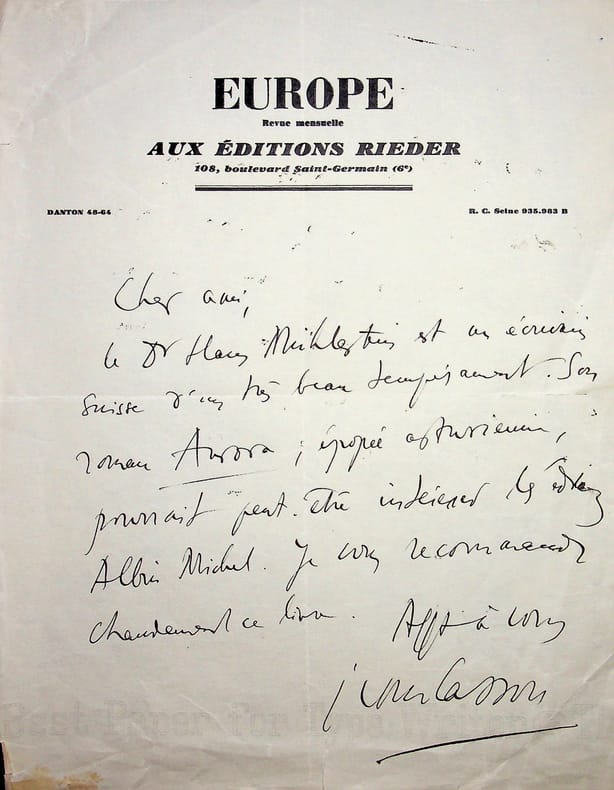 EUROPE
Revue mensuelle
AUX ÉDITIONS RIEDER
108, boulevard Saint-Germain (6e)
DANTON 48-64
R. C. Seine 935.983 B
Cher ami,
le Dr Hans Mühlestein est un écrivain
suisse d'un très beau tempérament. Son
roman Aurora, épopée asturienne,
pourrait peut-être intéresser les éditions
Albin Michel. Je vous recommande
chaudement ce livre.
Afft à vous
Jean Cassou
Best Paper for Type Writer